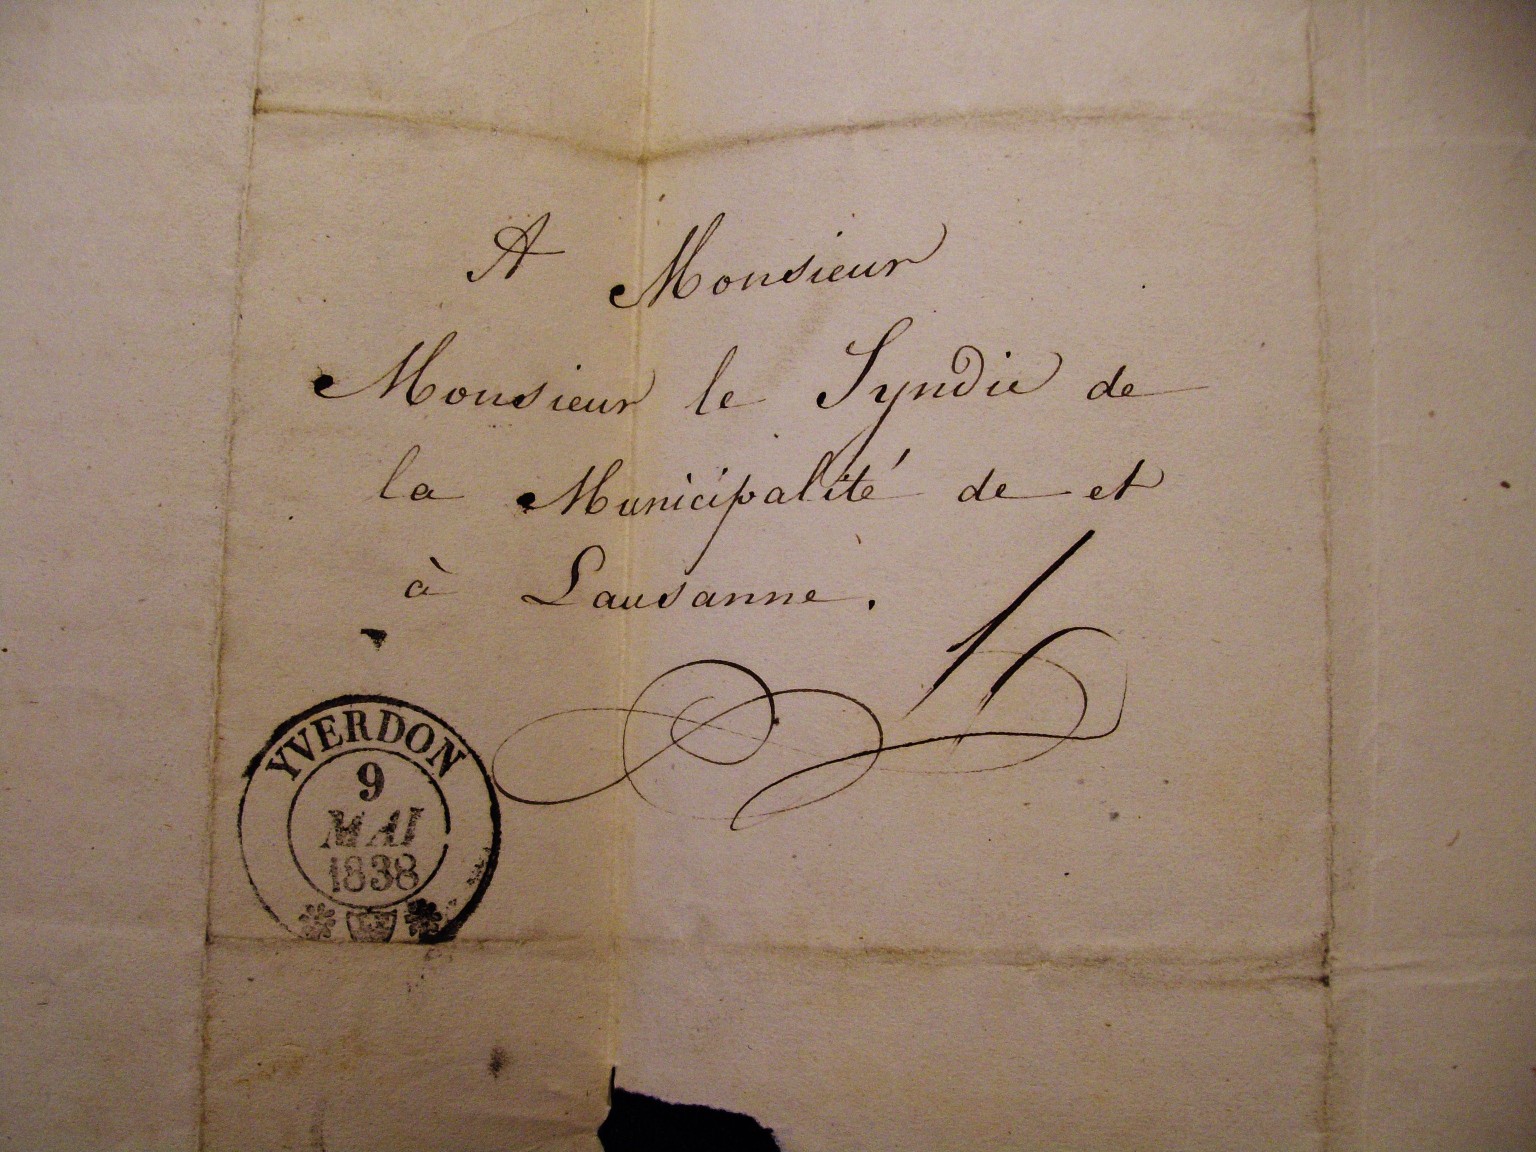 A Monsieur
Monsieur le Syndic de
la Municipalité de et
à Lausanne.
YVERDON
9
MAI
1838